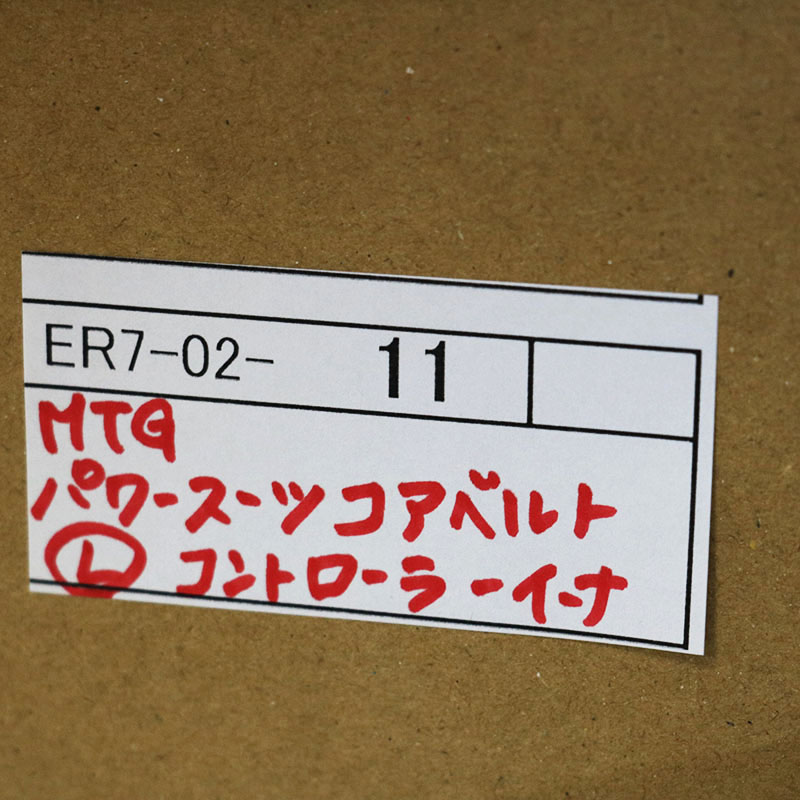 ER7-02- 11
MTG
パワースーツコアベルト
Ⓛ コントローラーイーナ